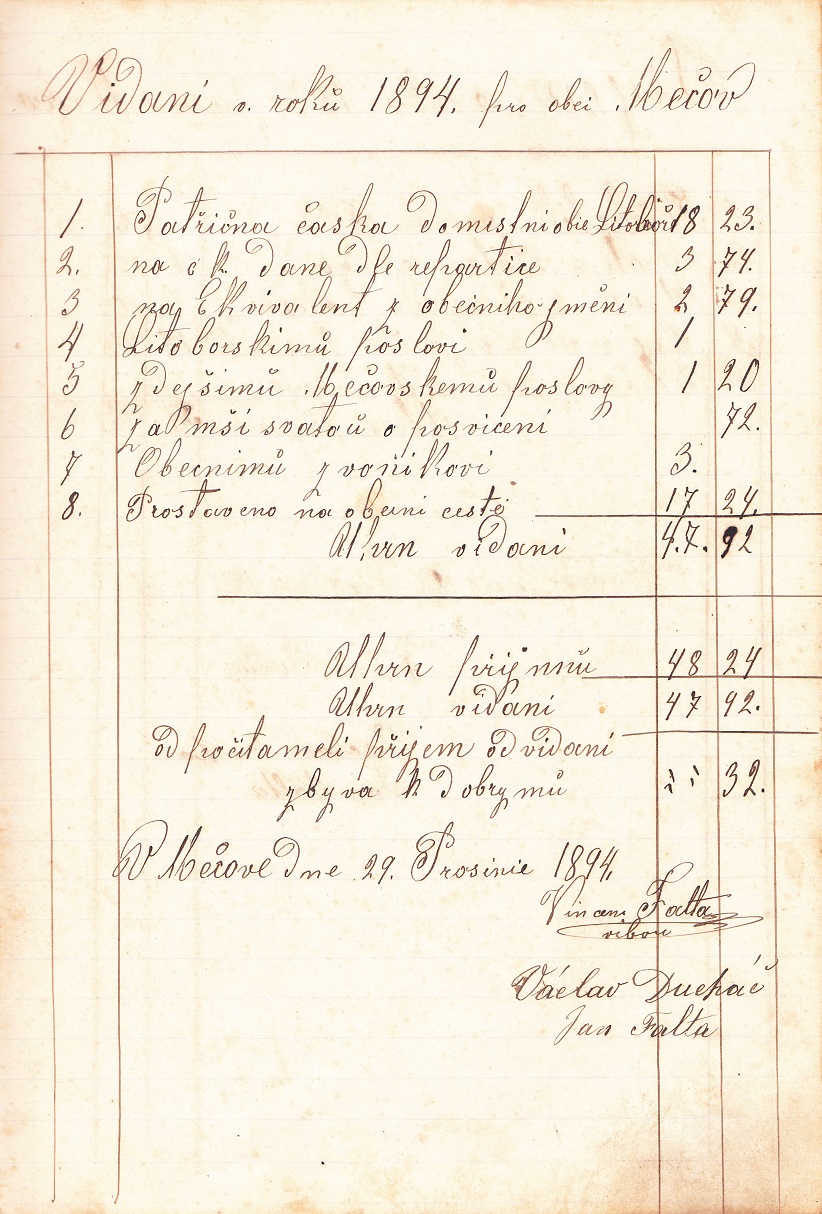 Vidaní v. roků 1894. pro obci Mečov
1. Patřična časka do místni obie Litoboř 18 23.
2. na c k. dane dle repartice 3 74.
3 na Ekvivalent z obecniho jměni 2 79.
4 Litoborskimů poslovi 1
5 zdejšimů Mečovskemů poslovy 1 20
6 za mši svatoů o posviceni 72.
7 Obecnimů zvoňikovi 3.
8. Prostaveno na obecni cestě 17 24.
Uhrn vidani 47. 92
Uhrn přijmů 48 24
Uhrn vidani 47 92.
od počitameli přijem od vidani
zbyva k dobrymů " 32.
V Mečově Dne 29. Prosince 1894.
Vincenc Falta
vibor
Václav Ducháč
Jan Falta